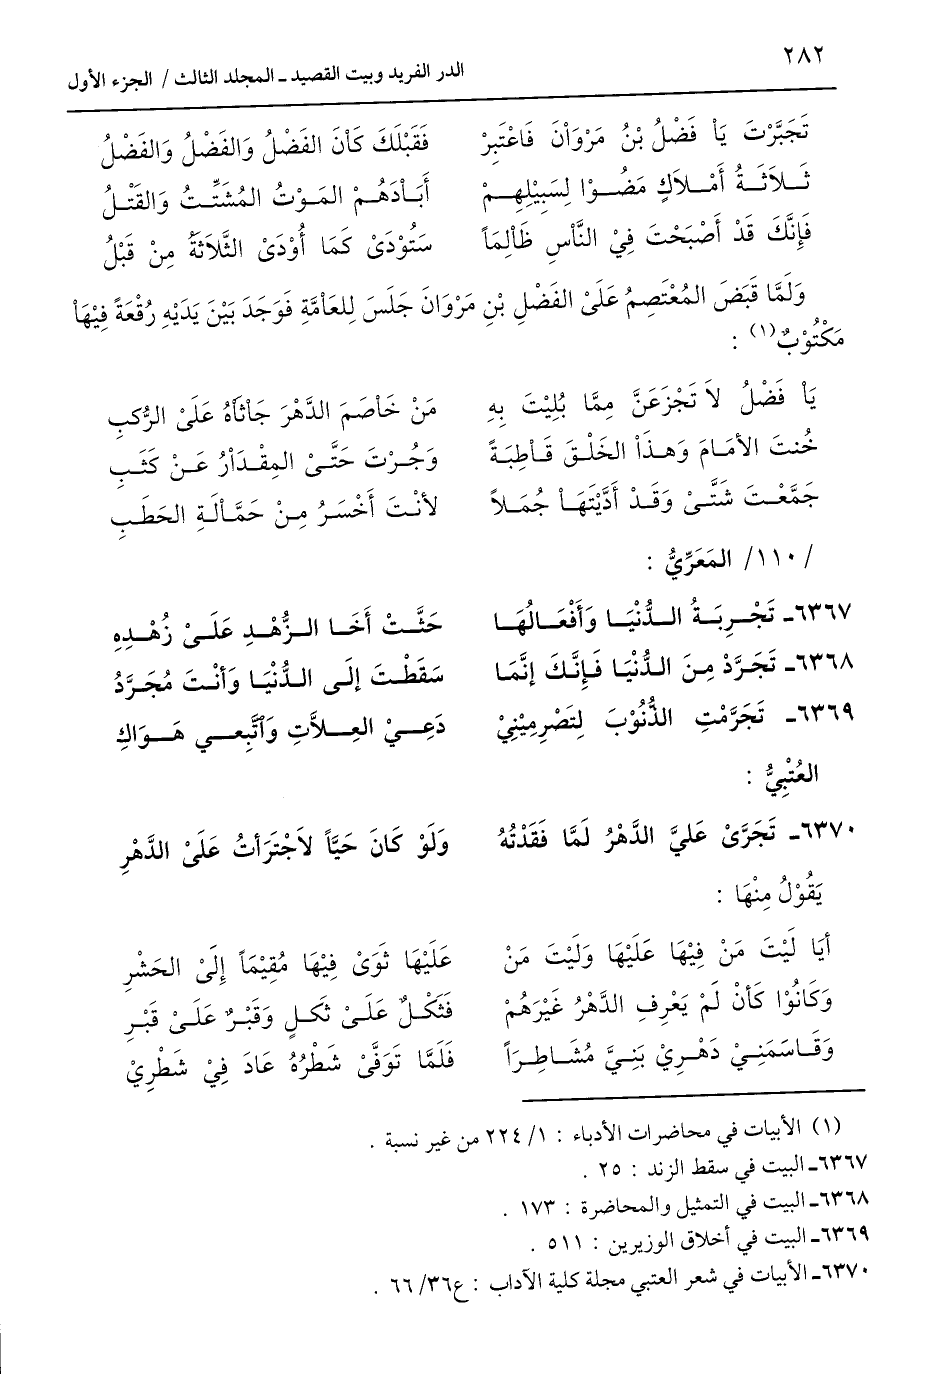 ٢٨٢
الدر الفريد وبيت القصيد ـ المجلد الثالث / الجزء الأول
تَجَبَّرْتَ يَاْ فَضْلُ بْنُ مَرْوَاْنَ فَاعْتَبِرْ فَقَبْلَكَ كَاْنَ الفَضْلُ وَالفَضْلُ وَالفَضْلُ
ثَلَاَثَةُ أَمْلَاَكٍ مَضُوْا لِسَبِيْلِهِمْ أَبَاْدَهُمْ المَوْتُ المُشَتِّتُ وَالقَتْلُ
فَإِنَّكَ قَدْ أَصْبَحْتَ فِيْ النَّاْسِ ظَاْلِمَاً سَتُوْدَىْ كَمَا أُوْدَىْ الثَّلَاَثَةُ مِنْ قَبْلُ
وَلَمَّا قَبَضَ المُعْتَصِمُ عَلَىْ الفَضْلِ بْنِ مَرْوَانَ جَلَسَ لِلعَاْمَّةِ فَوَجَدَ بَيْنَ يَدَيْهِ رُقْعَةً فِيْهَاْ
مَكْتُوْبٌ(١) :
يَاْ فَضْلُ لَاَ تَجْزَعَنَّ مِمَّا بُلِيْتَ بِهِ مَنْ خَاْصَمَ الدَّهْرَ جَاْثَاْهُ عَلَىْ الرُّكبِ
خُنتَ الأمَامَ وَهَذَاْ الخَلْقَ قَاْطِبَةً وَجُرْتَ حَتَّىْ المِقْدَاْرُ عَنْ كَثَبِ
جَمَّعْتَ شَتَّىْ وَقَدْ أَدَّيْتَهَاْ جُمَلاً لأَنْتَ أَخْسَرُ مِنْ حَمَّاْلَةِ الحَطَبِ
/١١٠/ المَعَرِّيُّ :
٦٣٦٧ـ تَجْرِبَةُ الدُّنْيَا وَأَفْعَالُهَا حَثَّتْ أَخَا الزُّهْدِ عَلَىْ زُهْدِهِ
٦٣٦٨ـ تَجَرَّدْ مِنَ الدُّنْيَا فَإِنَّكَ إِنَّمَا سَقَطْتَ إِلَى الدُّنْيَا وَأَنْتَ مُجَرَّدُ
٦٣٦٩ـ تَجَرَّمْتِ الذُّنُوْبَ لِتَصْرِمِيْنِيْ دَعِيْ العِلاَّتِ وَاتَّبِعي هَوَاكِ
العُتْبِيُّ :
٦٣٧٠ـ تَجَرَّىْ عَليَّ الدَّهْرُ لَمَّا فَقَدْتُهُ وَلَوْ كَانَ حَيَّاً لاَجْتَرَأتُ عَلَىْ الدَّهْرِ
يَقُوْلُ مِنْهَا :
أيَا لَيْتَ مَنْ فِيْهَا عَلَيْهَا وَلَيْتَ مَنْ عَلَيْهَا ثَوَىْ فِيْهَا مُقِيْمَاً إِلَىْ الحَشْرِ
وَكَانُوْا كَأنْ لَمْ يَعْرِفِ الدَّهْرُ غَيْرَهُمْ فَثَكْلٌ عَلَىْ ثَكلٍ وَقَبْرٌ عَلَىْ قَبْرِ
وَقَاسَمَنِيْ دَهْرِيْ بَنِيَّ مُشَاطِرَاً فَلَمَّا تَوَفَّىْ شَطْرُهُ عَادَ فِيْ شَطْرِيْ
(١) الأبيات في محاضرات الأدباء : ١/ ٢٢٤ من غير نسبة .
٦٣٦٧ـ البيت في سقط الزند : ٢٥ .
٦٣٦٨ـ البيت في التمثيل والمحاضرة : ١٧٣ .
٦٣٦٩ـ البيت في أخلاق الوزيرين : ٥١١ .
٦٣٧٠ـ الأبيات في شعر العتبي مجلة كلية الآداب : ع٣٦/ ٦٦ .